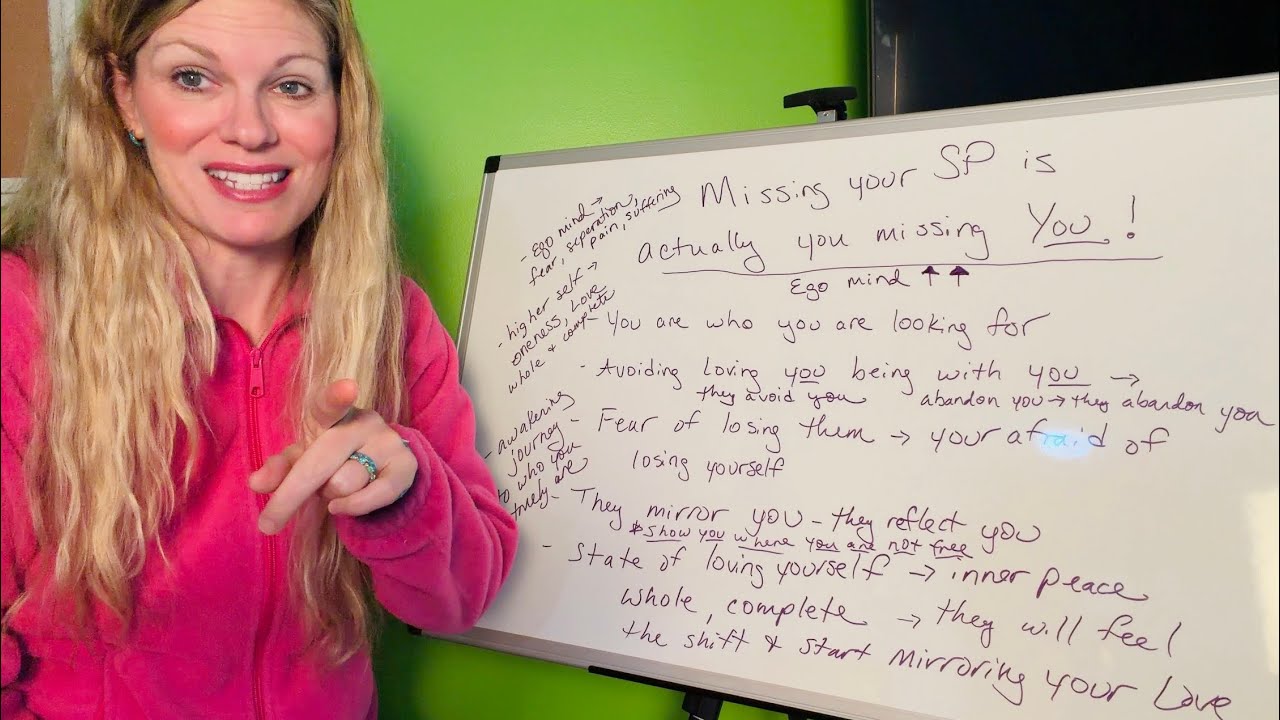 Missing your SP is
actually you missing You!
Ego mind ↑ ↑
- Ego mind →
fear, seperation,
pain, suffering
- higher self →
oneness, Love
whole & complete
- awakening
journey
to who you
truely are
- You are who you are looking for
- Avoiding Loving you being with you →
they avoid you abandon you → they abandon you
- Fear of losing them → your afraid of
losing yourself
- They mirror you - they reflect you
* show you where you are not free
- State of loving yourself → inner peace
whole, complete → they will feel
the shift & start mirroring your Love